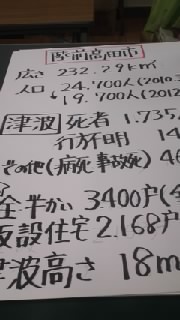 陸前高田市
広さ 232.29km²
人口 24.700人(2010.
↓19.700人(2012
津波 死者 1.735.
行方不明 14
その他(病死 事故死) 46
全半かい 3400戸(
仮設住宅 2.168戸
津波高さ 18m